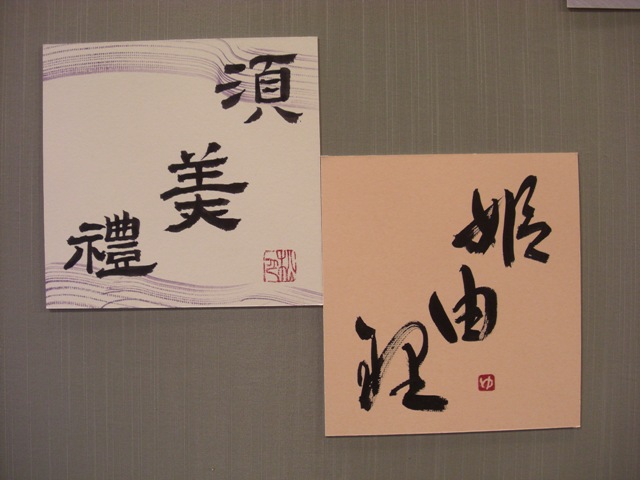 須美禮
姫由理
ゆ